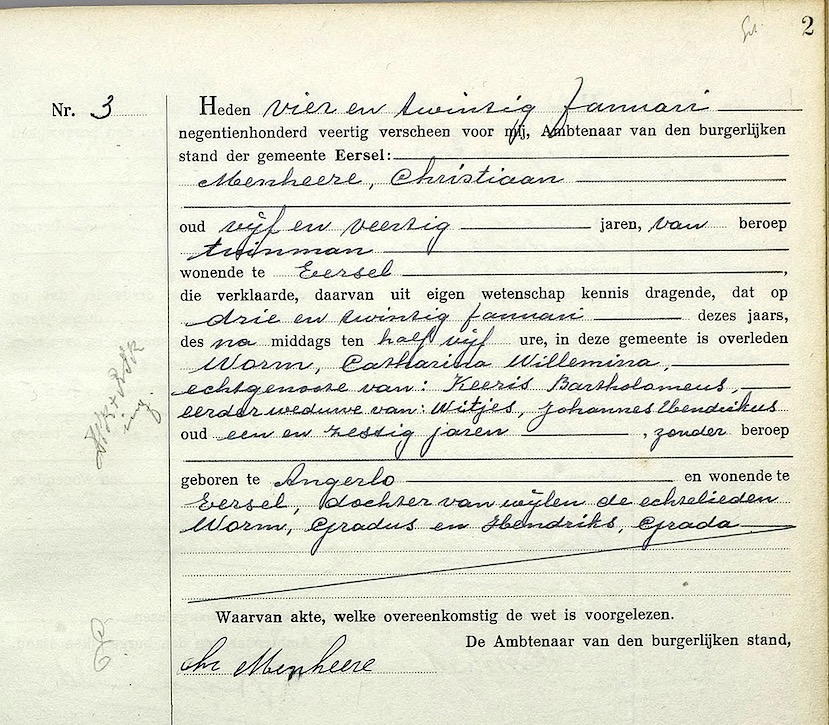 2
Nr. 3
Heden vier en twintig Januari
negentienhonderd veertig verscheen voor mij, Ambtenaar van den burgerlijken
stand der gemeente Eersel:
Menheere, Christiaan
oud vijf en veertig jaren, van beroep
tuinman
wonende te Eersel,
die verklaarde, daarvan uit eigen wetenschap kennis dragende, dat op
drie en twintig Januari dezes jaars,
des na middags ten half vijf ure, in deze gemeente is overleden
Worm, Catharina Willemina,
echtgenoote van: Keeris Bartholomeus,
eerder weduwe van: Witjes, Johannes Hendrikus
oud een en zestig jaren, zonder beroep
geboren te Angerlo en wonende te
Eersel, dochter van wijlen de echtelieden
Worm, Gradus en Hendriks, Grada
Waarvan akte, welke overeenkomstig de wet is voorgelezen.
De Ambtenaar van den burgerlijken stand,
Chr Menheere